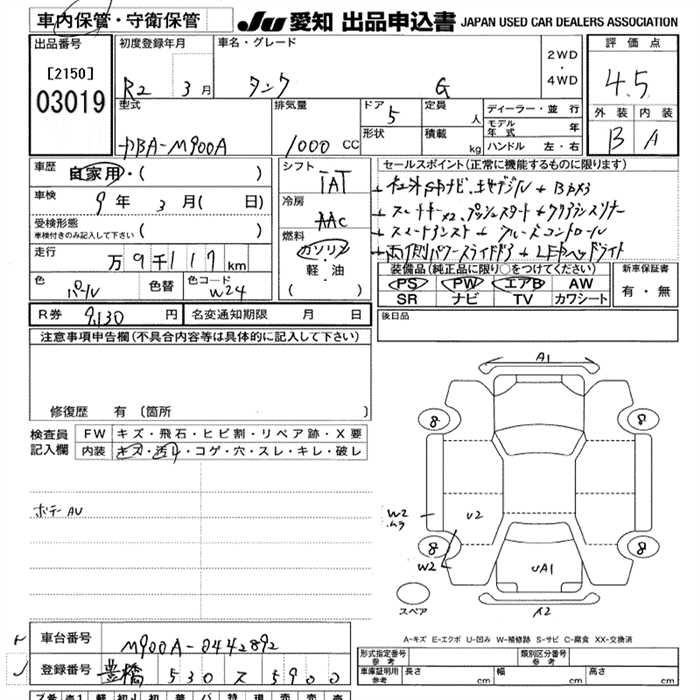 車内保管・守衛保管
JU 愛知 出品申込書 JAPAN USED CAR DEALERS ASSOCIATION
出品番号
[2150]
03019
初度登録年月
R2 3月
車名・グレード
タンク G
2WD
・
4WD
評価点
4.5
外装 内装
B A
型式
DBA-M900A
排気量
1000 CC
ドア
5
形状
定員
人
積載
kg
ディーラー・並行
モデル年式 年
ハンドル 左・右
車歴
自家用・( )
車検
9年 3月( 日)
受検形態
車検付きのみ記入して下さい ( )
走行
万9千117km
色
パール
色替
色コード
W24
シフト
IAT
冷房
AAC
燃料
ガソリン
軽・油
( )
セールスポイント(正常に機能するものに限ります)
+ 社外SDナビ、地デジTV + Bカメラ
+ スマートキーx2、プッシュスタート + クリアランスソナー
+ スマートアシスト + クルーズコントロール
+ 両側パワースライドドア + LEDヘッドライト
装備品(純正品に限り○をつけてください)
PS PW エアB AW
SR ナビ TV カワシート
新車保証書
有・無
R券 9,130 円
名変通知期限 月 日
後日品
注意事項申告欄(不具合内容等は具体的に記入して下さい)
修復歴 有 (箇所 )
検査員記入欄
FW キズ・飛石・ヒビ割・リペア跡・X要
内装 キズ・汚れ・コゲ・穴・スレ・キレ・破レ
ボデーAU
A1
8
8
W2
U2
8
W2
8
UA1
スペア
X2
A-キズ E-エクボ U-凹み W-補修跡 S-サビ C-腐食 XX-交換済
車台番号
M900A-0442892
登録番号
豊橋 530 ス 5900
形式指定番号
参考
類別区分番号
参考
車庫証明用
参考
長さ cm
幅 cm
高さ cm